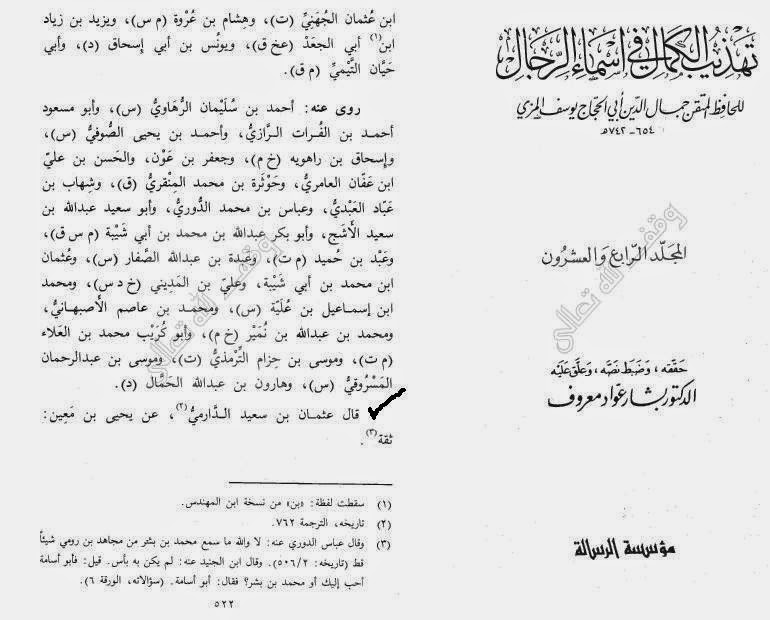 تهذيب الكمال في أسماء الرجال
للحافظ المتقن جمال الدين أبي الحجاج يوسف المزي
٦٥٤ - ٧٤٢ هـ
المجلد الرابع والعشرون
حققه، وضبط نصه، وعلق عليه
الدكتور بشار عواد معروف
مؤسسة الرسالة
وقف لله تعالى
ابن عُثمان الجُهَنيِّ (ت)، وهِشام بن عُرْوة (م س)، ويزيد بن زياد
ابن(١) أبي الجعْدِ (عخ ق)، ويونُس بن أبي إسحاق (د)، وأبي
حَيَّان التَّيْميِّ (م ق).
روى عنه: أحمد بن سُلَيْمان الرُّهاويُّ (س)، وأبو مسعود
أحمد بن الفُرات الرَّازيُّ، وأحمد بن يحيى الصُّوفيُّ (س)،
وإسحاق بن راهويه (خ م)، وجعفر بن عَوْن، والحَسن بن عليّ
ابن عَفّان العامريُّ، وحَوْثَرة بن محمد المِنْقريُّ (ق)، وشِهاب بن
عَبّاد العَبْديُّ، وعباس بن محمد الدُّوريُّ، وأبو سعيد عبدالله بن
سعيد الأشج، وأبو بكر عبدالله بن محمد بن أبي شَيْبة (م س ق)،
وعَبْد بن حُميد (م ت)، وعَبدة بن عبدالله الصَّفار (س)، وعُثمان
ابن محمد بن أبي شَيْبة، وعليّ بن المَديني (خ د س)، ومحمد
ابن إسماعيل بن عُلَيّة (س)، ومحمد بن عاصم الأصبهانيُّ،
ومحمد بن عبدالله بن نُمَيْر (خ م)، وأبو كُرَيْب محمد بن العَلاء
(م ت)، وموسى بن حِزام التِّرْمذيُّ (ت)، وموسى بن عبدالرحمان
المَسْرُوقيُّ (س)، وهارون بن عبدالله الحَمَّال (د).
قال عثمان بن سعيد الدَّارميُّ(٢)، عن يحيى بن مَعِين:
ثقة(٣).
(١) سقطت لفظة: «بن» من نسخة ابن المهندس.
(٢) تاريخه، الترجمة ٧٦٢.
(٣) وقال عباس الدوري عنه: لا والله ما سمع محمد بن بشر من مجاهد بن رومي شيئاً
قط (تاريخه: ٥٠٦/٢). وقال ابن الجنيد عنه: لم يكن به بأس. قيل: فأبو أسامة
أحب إليك أو محمد بن بشر؟ فقال: أبو أسامة. (سؤالاته، الورقة ٦).
٥٢٢
وقف لله تعالى